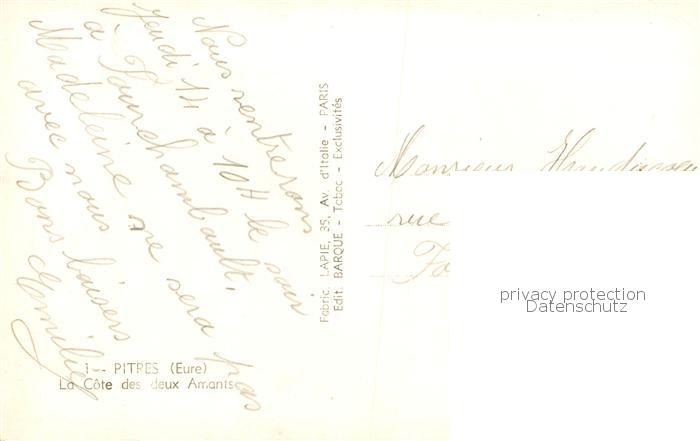 Nous rentrerons
Jeudi 14 à 10H le soir
à Fourchambault.
Madeleine ne sera pas
avec nous
Bons baisers
Emilie
1 -- PITRES (Eure)
La Côte des deux Amants
Fabric. LAPIE, 35, Av. d'Italie - PARIS
Edit. BARQUE - Tabac - Exclusivités
Monsieur
rue
Fo
privacy protection
Datenschutz